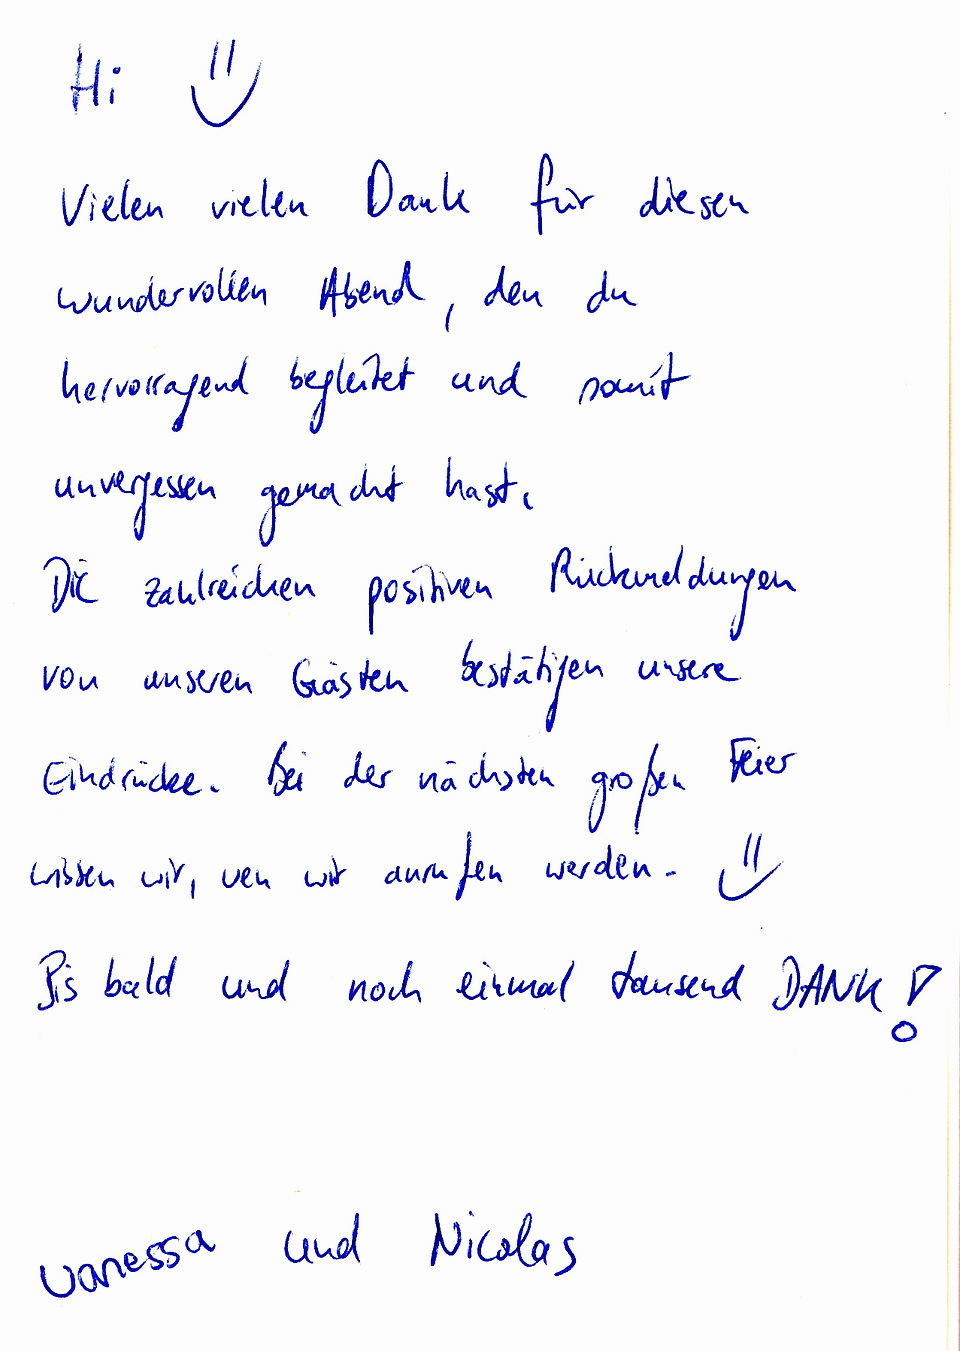 Hi
Vielen vielen Dank für diesen
wundervollen Abend, den du
hervorragend begleitet und somit
unvergessen gemacht hast.
Die zahlreichen positiven Rückmeldungen
von unseren Gästen bestätigen unsere
Eindrücke. Bei der nächsten großen Feier
wissen wir, wen wir anrufen werden.
Bis bald und noch einmal tausend DANK!
Vanessa und Nicolas